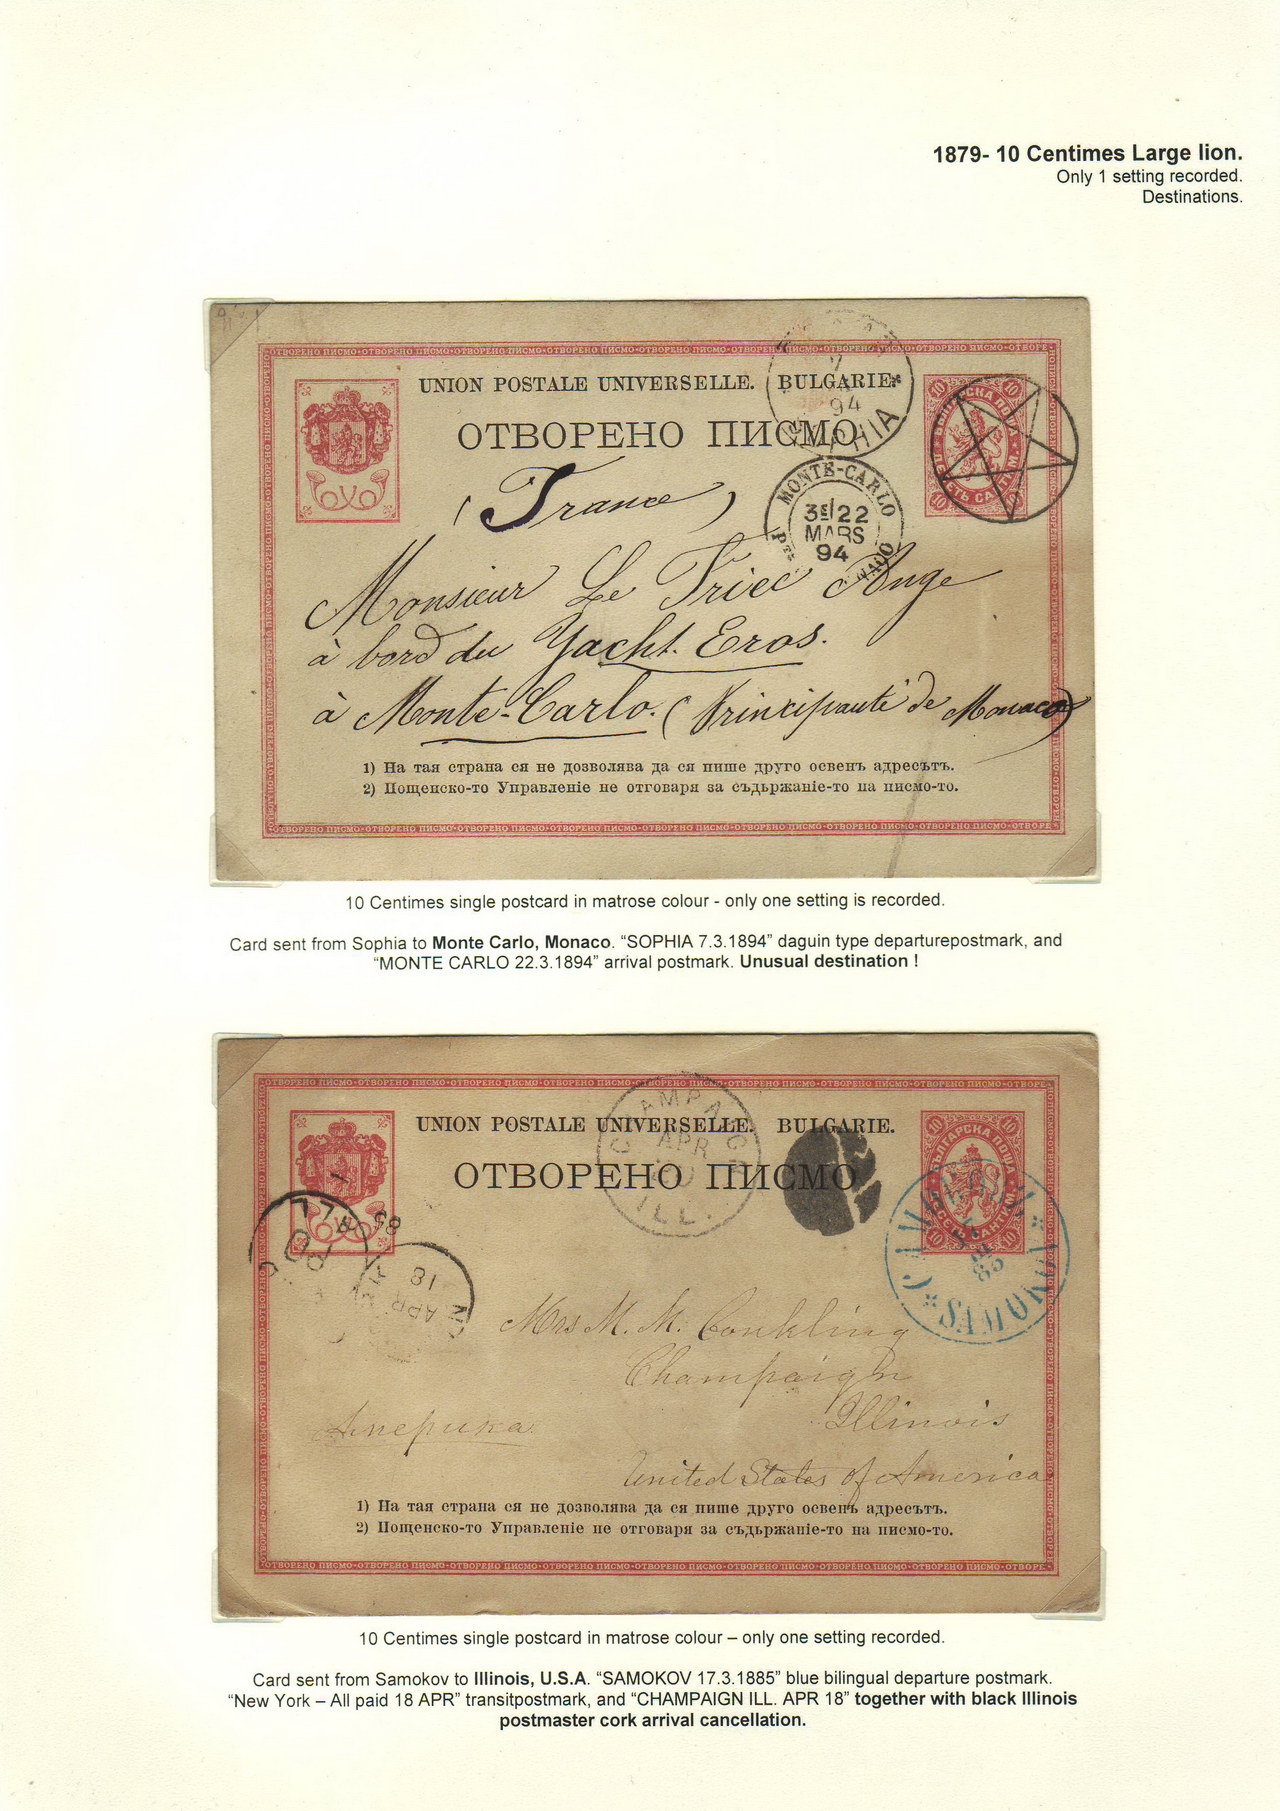 1879- 10 Centimes Large lion.
Only 1 setting recorded.
Destinations.
UNION POSTALE UNIVERSELLE. BULGARIE.
ОТВОРЕНО ПИСМО
БЪЛГАРСКА ПОЩА
10 10
10 10
94
SOPHIA
MONTE-CARLO
3E/22
MARS
94
(France)
Monsieur Le Triec Ange
à bord du Yacht Eros.
à Monte-Carlo. (Principauté de Monaco)
1) На тая страна ся не дозволява да ся пише друго освенъ адресътъ.
2) Пощенско-то Управленіе не отговаря за съдържаніе-то на писмо-то.
ОТВОРЕНО ПИСМО·ОТВОРЕНО ПИСМО·ОТВОРЕНО ПИСМО
10 Centimes single postcard in matrose colour - only one setting is recorded.
Card sent from Sophia to Monte Carlo, Monaco. “SOPHIA 7.3.1894” daguin type departurepostmark, and
“MONTE CARLO 22.3.1894” arrival postmark. Unusual destination !
UNION POSTALE UNIVERSELLE. BULGARIE.
ОТВОРЕНО ПИСМО
БЪЛГАРСКА ПОЩА
10 10
10 10
CHAMPAIGN
APR
ILL.
85
18
APR
Mrs M. M. Conkling
Champaign
Illinois
Америка
United States of America
1) На тая страна ся не дозволява да ся пише друго освенъ адресътъ.
2) Пощенско-то Управленіе не отговаря за съдържаніе-то на писмо-то.
ОТВОРЕНО ПИСМО·ОТВОРЕНО ПИСМО·ОТВОРЕНО ПИСМО
10 Centimes single postcard in matrose colour – only one setting recorded.
Card sent from Samokov to Illinois, U.S.A. “SAMOKOV 17.3.1885” blue bilingual departure postmark.
“New York – All paid 18 APR” transitpostmark, and “CHAMPAIGN ILL. APR 18” together with black Illinois
postmaster cork arrival cancellation.